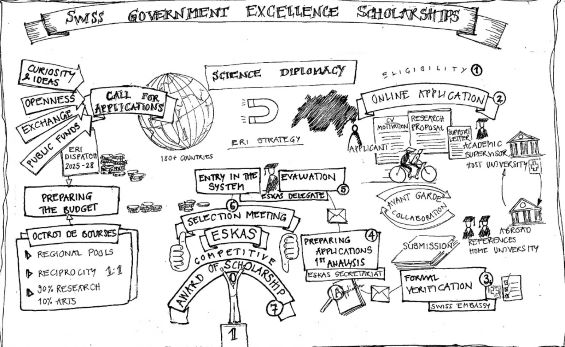 SWISS GOVERNMENT EXCELLENCE SCHOLARSHIPS
CURIOSITY
& IDEAS
OPENNESS
EXCHANGE
PUBLIC FUNDS
CALL FOR
APPLICATIONS
180+ COUNTRIES
ERI
DISPATCH
2025-28
PREPARING
THE BUDGET
OCTROI DE BOURSES
REGIONAL POOLS
RECIPROCITY 1:1
90% RESEARCH
10% ARTS
SCIENCE DIPLOMACY
ERI STRATEGY
ELIGIBILITY 1
ONLINE APPLICATION 2
APPLICANT
CV
MOTIVATION
RESEARCH
PROPOSAL
SUPPORT
LETTER
ACADEMIC
SUPERVISOR
HOST UNIVERSITY
AVANT GARDE
COLLABORATION
ABROAD
REFERENCES
HOME UNIVERSITY
SUBMISSION
FORMAL
VERIFICATION
3
SWISS EMBASSY
4
PREPARING
APPLICATIONS
1st ANALYSIS
ESKAS SECRETARIAT
A
ENTRY IN THE
SYSTEM
EVALUATION
ESKAS DELEGATE
5
6
SELECTION MEETING
ESKAS
COMPETITIVE
AWARD OF SCHOLARSHIP
7
1